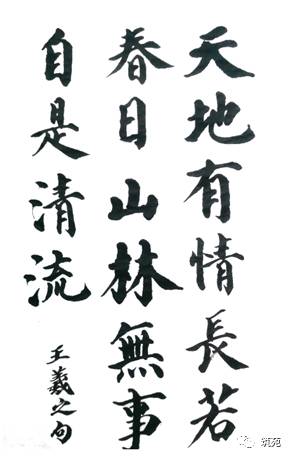 天地有情長若
春日山林無事
自是清流
王羲之句
筑苑